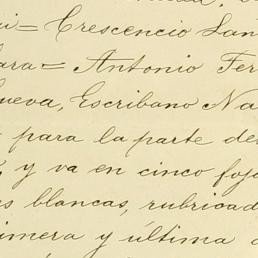 ui = Crescencio San
ara = Antonio Fer
ueva, Escribano Na
para la parte de
, y va en cinco foj
s blancas, rubricad
imera y última